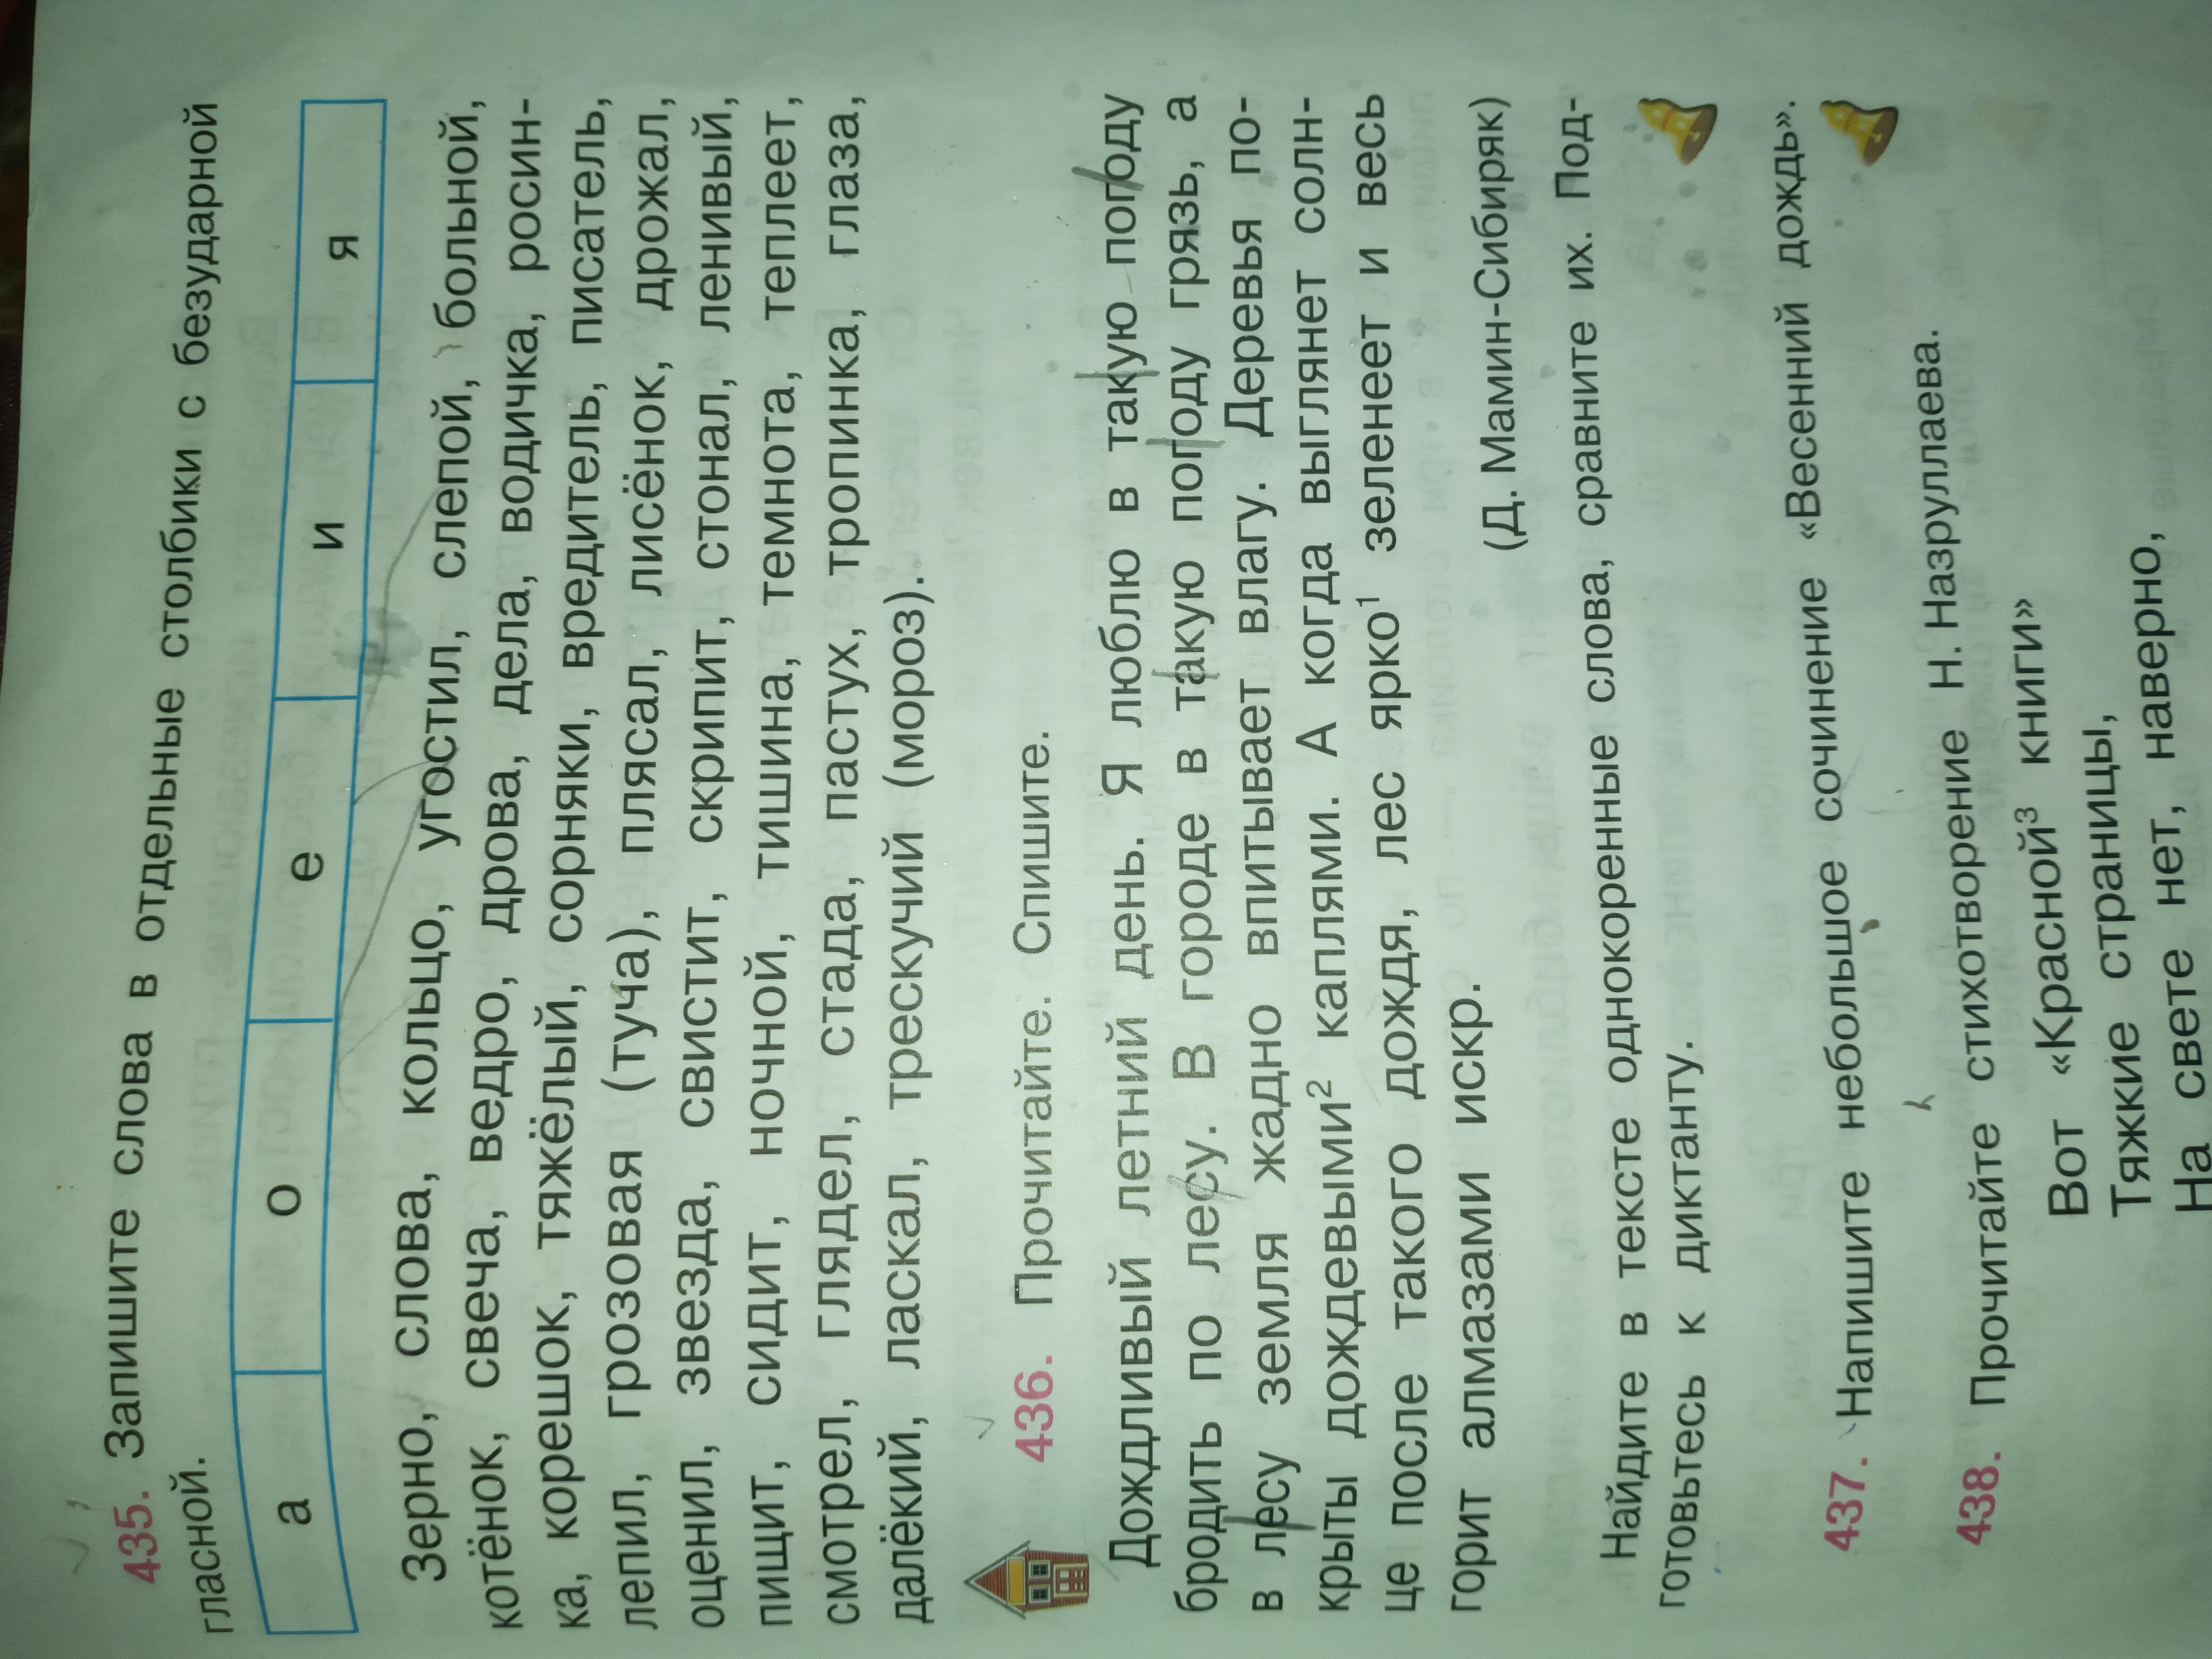 435. Запишите слова в отдельные столбики с безударной
гласной.
а о е и я
Зерно, слова, кольцо, угостил, слепой, больной,
котёнок, свеча, ведро, дрова, дела, водичка, росин-
ка, корешок, тяжёлый, сорняки, вредитель, писатель,
лепил, грозовая (туча), плясал, лисёнок, дрожал,
оценил, звезда, свистит, скрипит, стонал, ленивый,
пищит, сидит, ночной, тишина, темнота, теплеет,
смотрел, глядел, стада, пастух, тропинка, глаза,
далёкий, ласкал, трескучий (мороз).
436. Прочитайте. Спишите.
Дождливый летний день. Я люблю в такую погоду
бродить по лесу. В городе в такую погоду грязь, а
в лесу земля жадно впитывает влагу. Деревья по-
крыты дождевыми² каплями. А когда выглянет солн-
це после такого дождя, лес ярко¹ зеленеет и весь
горит алмазами искр.
(Д. Мамин-Сибиряк)
Найдите в тексте однокоренные слова, сравните их. Под-
готовьтесь к диктанту.
437. Напишите небольшое сочинение «Весенний дождь».
438. Прочитайте стихотворение Н. Назруллаева.
Вот «Красной³ книги»
Тяжкие страницы,
На свете нет, наверно,